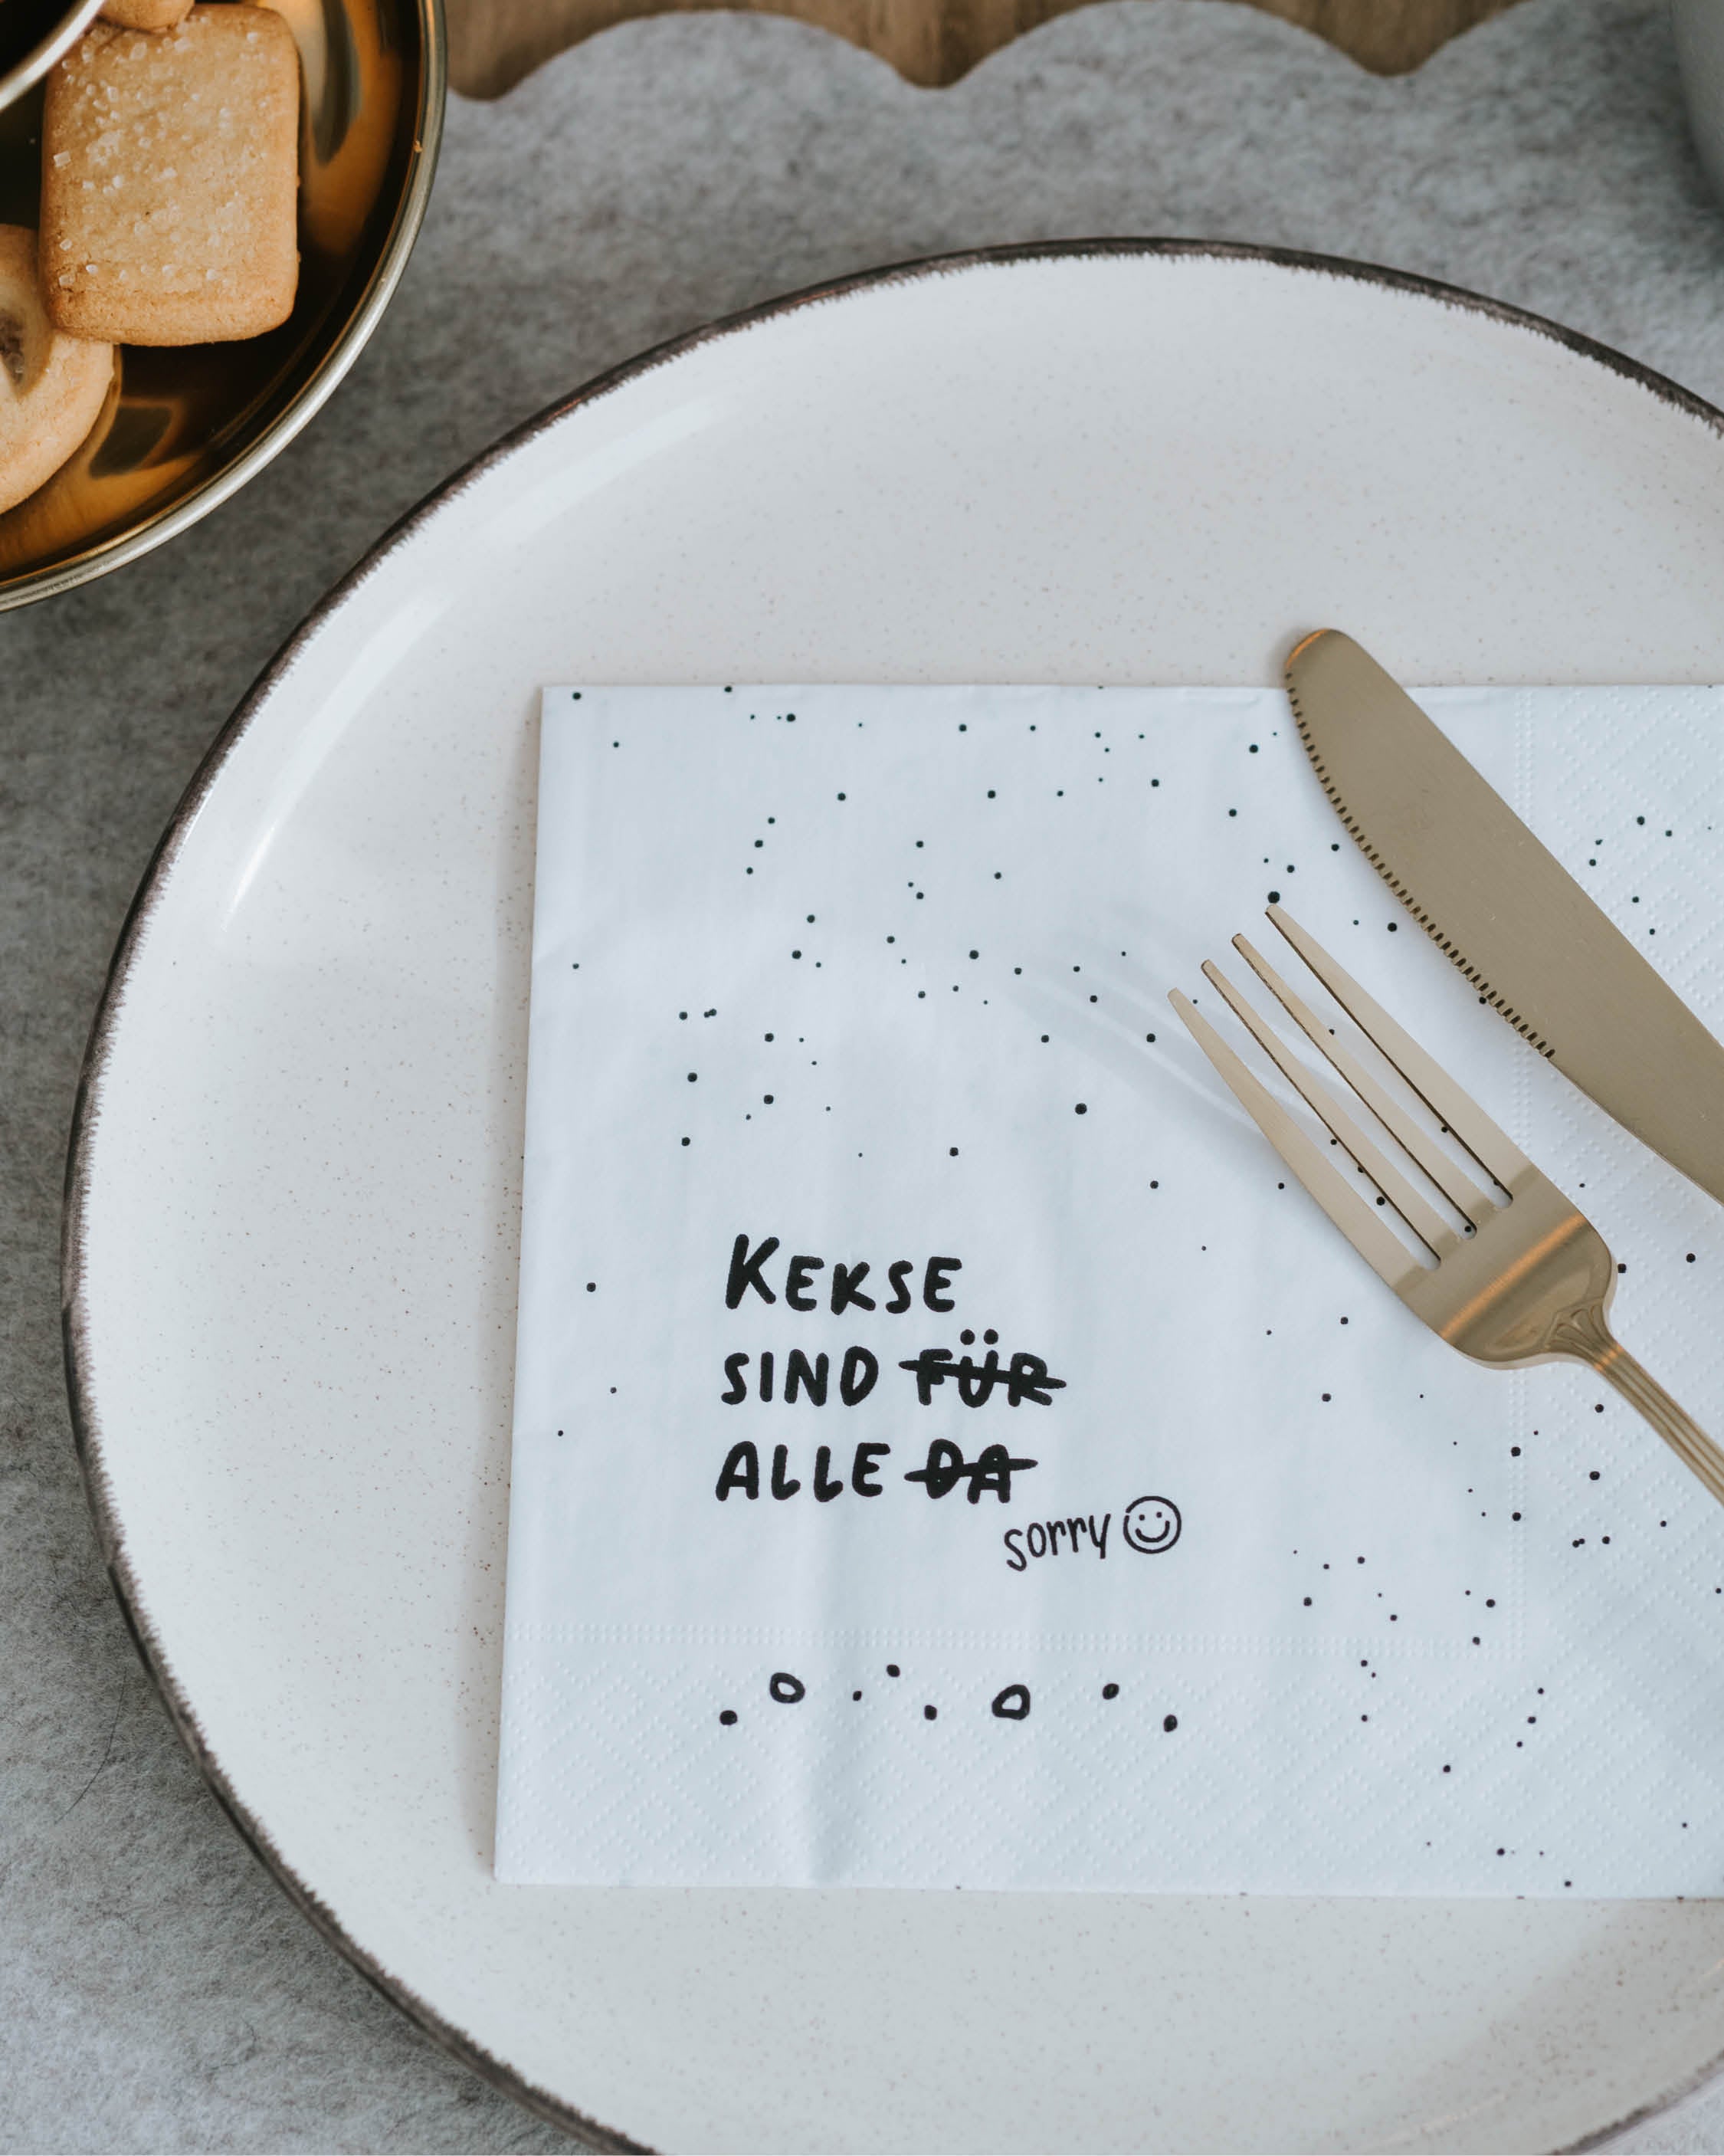 KEKSE
SIND FÜR
ALLE DA
sorry ☺